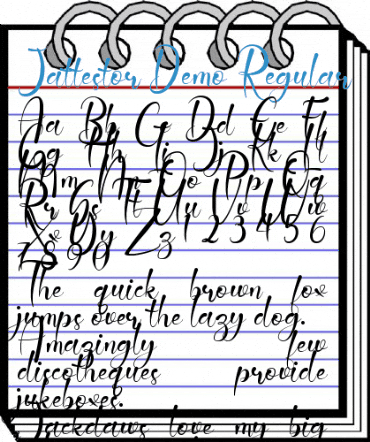 Jattestor Demo Regular
Aa Bb Cc Dd Ee Ff
Gg Hh Ii Jj Kk Ll
Mm Nn Oo Pp Qq
Rr Ss Tt Uu Vv Ww
Xx Yy Zz 1 2 3 4 5 6
7 8 9 0
The quick brown fox
jumps over the lazy dog.
Amazingly few
discotheques provide
jukeboxes.
Jackdaws love my big